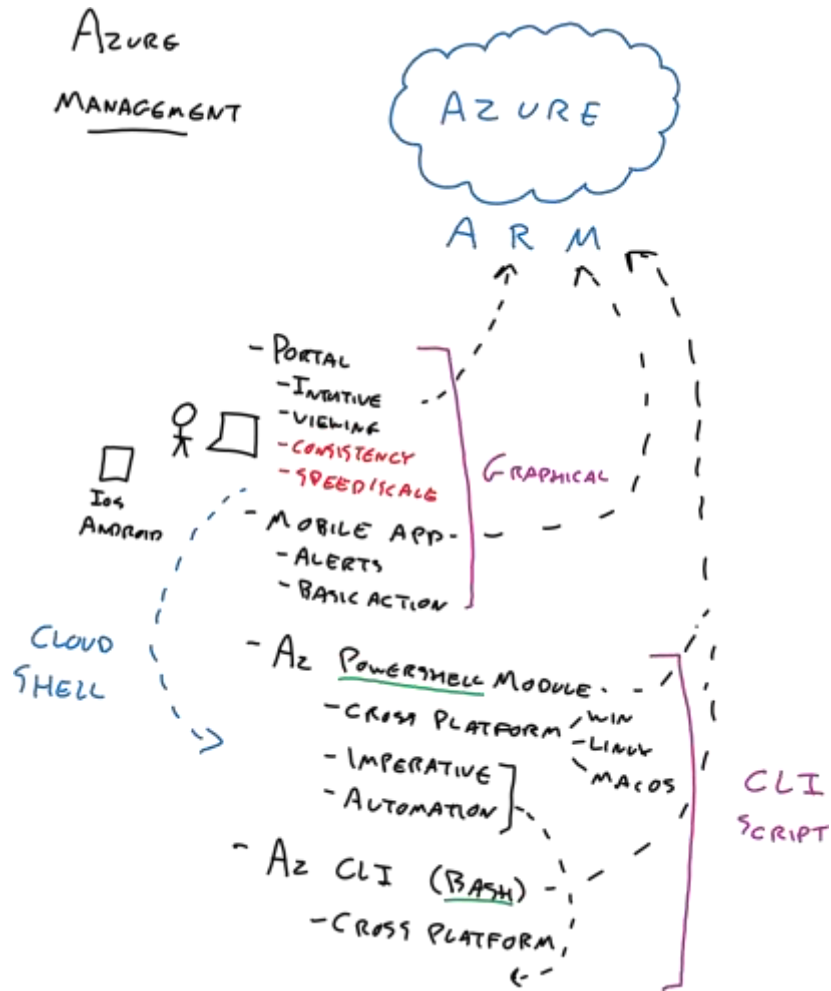 AZURE
MANAGEMENT
AZURE
ARM
- PORTAL
- INTUITIVE
- VIEWING
- CONSISTENCY
- SPEED/SCALE
GRAPHICAL
IOS
ANDROID
- MOBILE APP
- ALERTS
- BASIC ACTION
CLOUD
SHELL
- AZ POWERSHELL MODULE
- CROSS PLATFORM
WIN
- LINUX
MACOS
- IMPERATIVE
- AUTOMATION
CLI
SCRIPT
- AZ CLI (BASH)
- CROSS PLATFORM